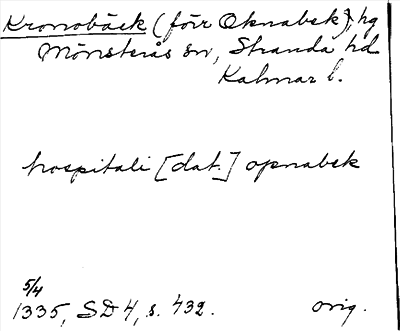 Kronobäck (förr Oknabek), hg
Mönsterås sn, Stranda hd
Kalmar l.
hospitali [dat.] opnabek
5/4
1335, SD 4, s. 432. orig.